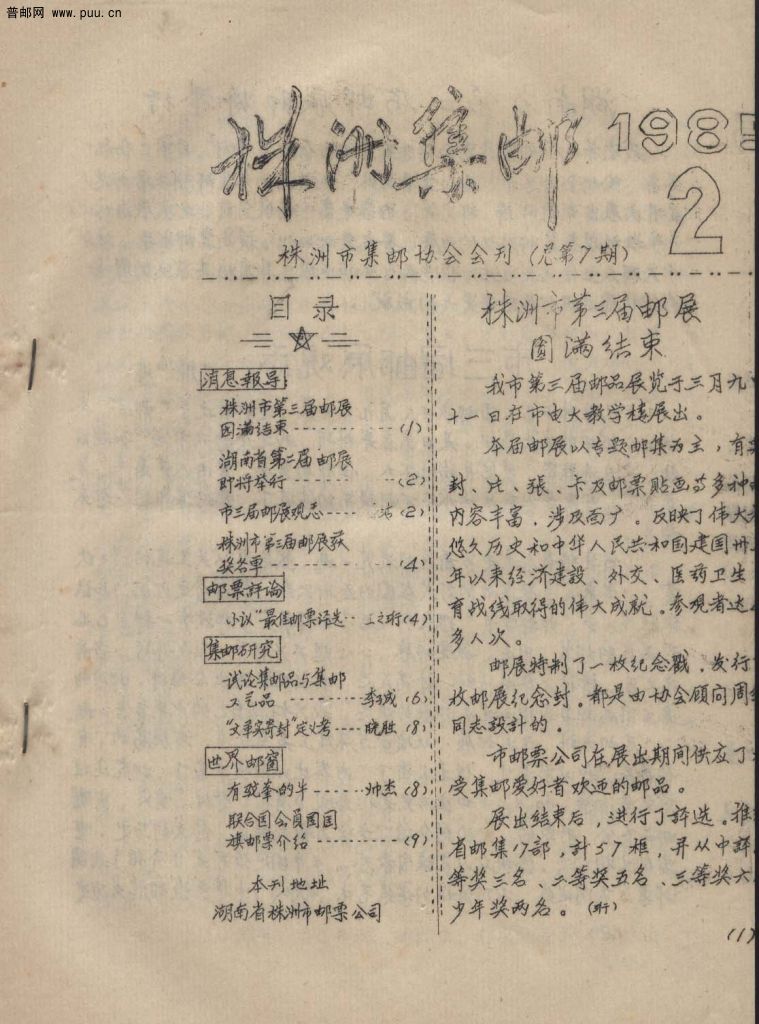 普邮网 www.puu.cn
株洲集邮 1985
2
株洲市集邮协会会刊（总第7期）
目录
消息報导
株洲市第三届邮展
圆满结束 (1)
湖南省第二届邮展
即将举行 (2)
市三届邮展观感 (2)
株洲市第三届邮展获
奖名单 (4)
邮票評論
小议“最佳邮票评选 (4)
集邮研究
试论集邮品与集邮
工艺品 李城 (6)
“文革实寄封”定义考 晓胜 (8)
世界邮窗
有驼峯的牛 帅杰 (8)
联合国会員国国
旗邮票介绍 (9)
本刊地址
湖南省株洲市邮票公司
株洲市第三届邮展
圆满结束
我市第三届邮品展览于三月九
十一日在市电大教学楼展出。
本届邮展以专题邮集为主，有
封、片、張、卡及邮票贴画等多种
内容丰富，涉及面广。反映了伟大
悠久历史和中华人民共和国建国卅
年以来经济建設、外交、医药卫生
育战线取得的伟大成就。参观者达
多人次。
邮展特制了一枚纪念戳，发行
枚邮展纪念封。都是由协会顾问周
同志設計的。
市邮票公司在展出期间供应了
受集邮爱好者欢迎的邮品。
展出结束后，进行了評选。推
省邮集17部，計57框，并从中評
等奖三名、二等奖五名、三等奖六
少年奖两名。
(1)